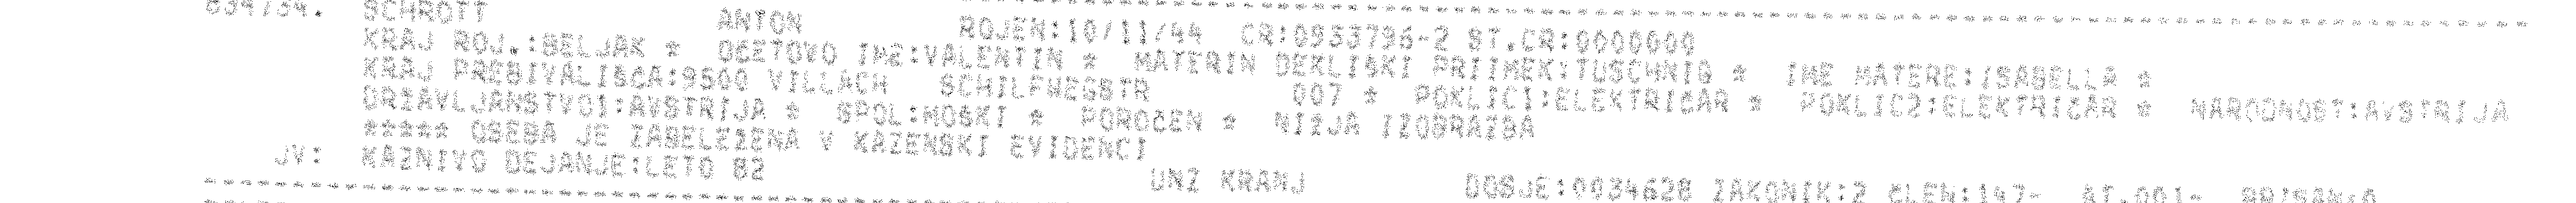 834734. SCHROTT ANTON ROJEN:10/11/44 CR:0953796-2 ST.CR:0000000
KRAJ ROJ.:BELJAK * OČETOVO IME:VALENTIN * MATERIN DEKLIŠKI PRIIMEK:TUSCHNIG * IME MATERE:ISABELLA *
KRAJ PREBIVALIŠČA:9500 VILLACH SCHILFWEGSTR 007 * POKLIC1:ELEKTRIČAR * POKLIC2:ELEKTRIČAR * NARODNOST:AVSTRIJA
DRŽAVLJANSTVO1:AVSTRIJA * SPOL:MOŠKI * POROČEN * NIŽJA IZOBRAZBA
***** OSEBA JE ZABELEŽENA V KAZENSKI EVIDENCI
JV: KAZNIVO DEJANJE:LETO 82 UNZ KRANJ DOSJE:0034628 ZAKONIK:2 ČLEN:147-